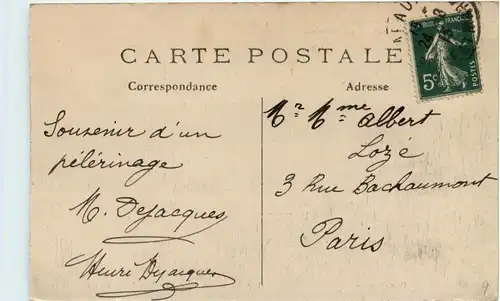 CARTE POSTALE
Correspondance
Adresse
Souvenir d'un
pélérinage
M. Dejacques
Henri Dejacques
Mr Mme Albert
Loze
3 Rue Bachaumont
Paris
5c
POSTES